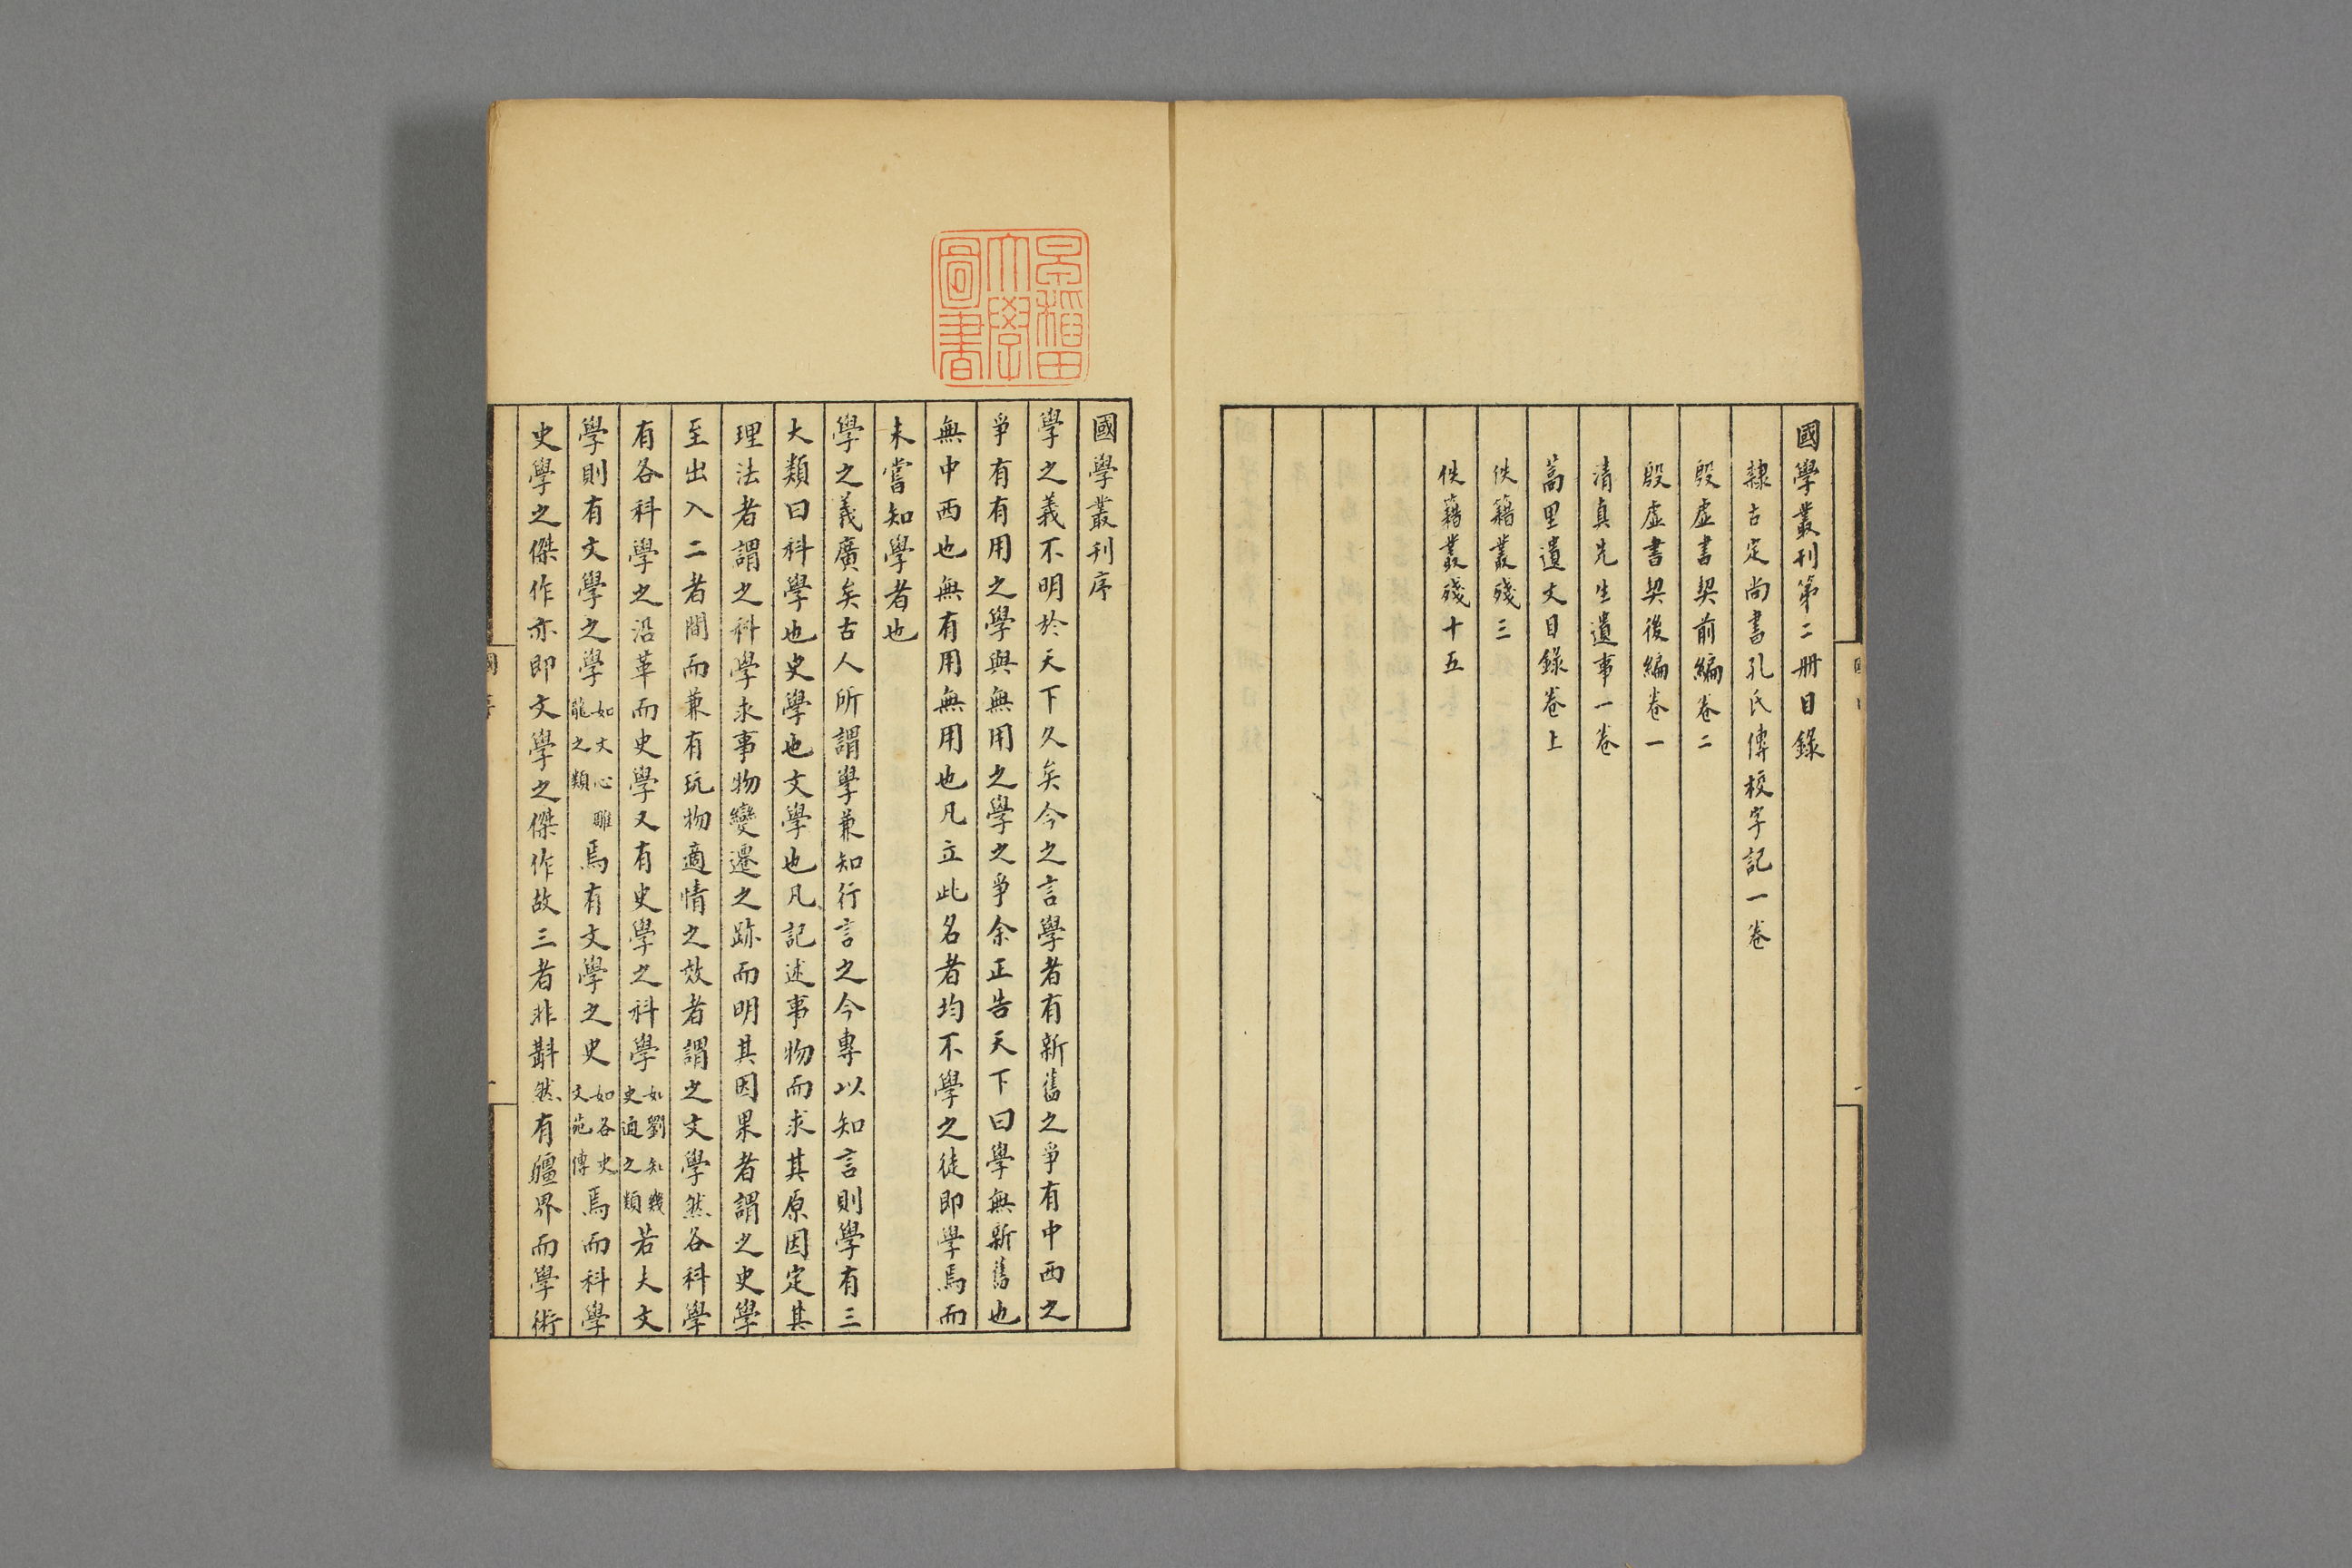 國學叢刊第二册目錄
隸古定尚書孔氏傳校字記一卷
殷虛書契前編卷二
殷虛書契後編卷一
清真先生遺事一卷
蒿里遺文目錄卷上
佚籍叢殘三
佚籍叢殘十五
早稻田
大學
圖書
國學叢刊序
學之義不明於天下久矣今之言學者有新舊之爭有中西之
爭有有用之學與無用之學之爭余正告天下曰學無新舊也
無中西也無有用無用也凡立此名者均不學之徒即學焉而
未嘗知學者也
學之義廣矣古人所謂學兼知行言之今專以知言則學有三
大類曰科學也史學也文學也凡記述事物而求其原因定其
理法者謂之科學求事物變遷之跡而明其因果者謂之史學
至出入二者間而兼有玩物適情之效者謂之文學然各科學
有各科學之沿革而史學又有史學之科學如劉知幾史通之類若夫文
學則有文學之學如文心雕龍之類焉有文學之史如各史文苑傳焉而科學
史學之傑作亦即文學之傑作故三者非斠然有疆界而學術